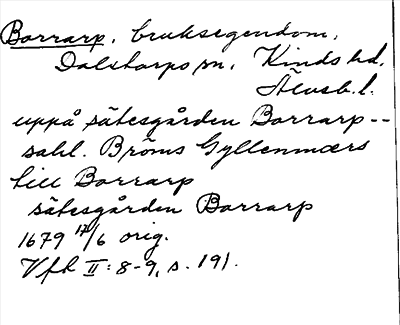 Borrarp, bruksegendom,
Dalstorps sn, Kinds hd,
Älvsb. l.
uppå sätesgården Borrarp --
sahl. Bröms Gyllenmers
till Borrarp
sätesgården Borrarp
1679 17/6 orig.
Vfk II: 8-9, s. 191.